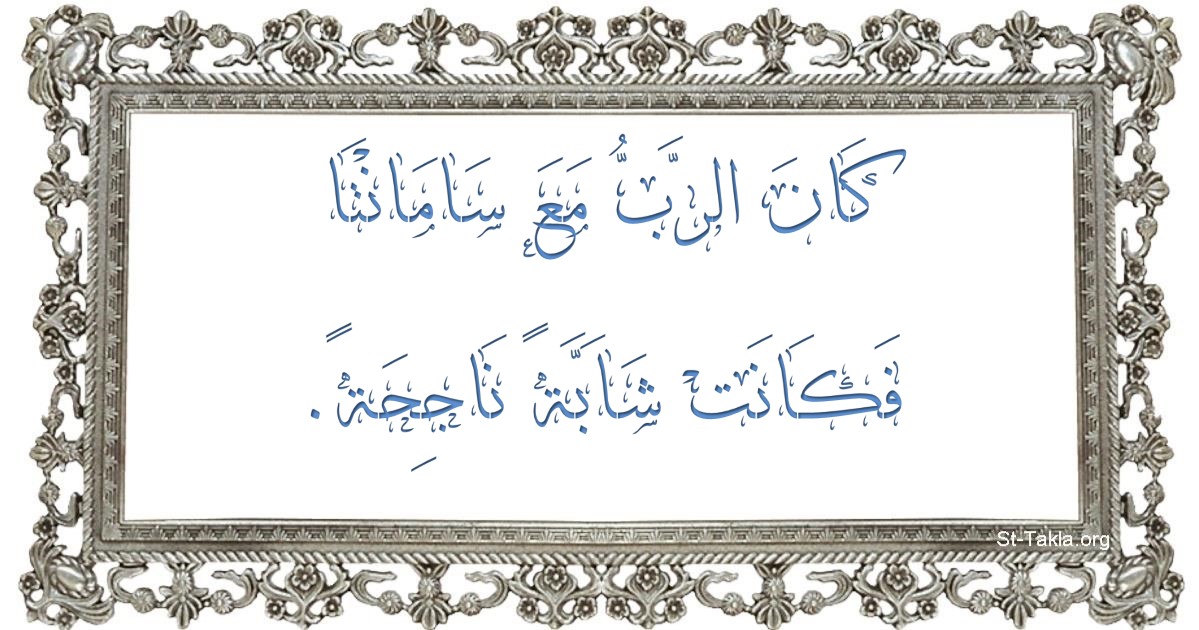 كَانَ الرَّبُّ مَعَ سَامَانْثَا
فَكَانَتْ شَابَّةً نَاجِحَةً.
St-Takla.org